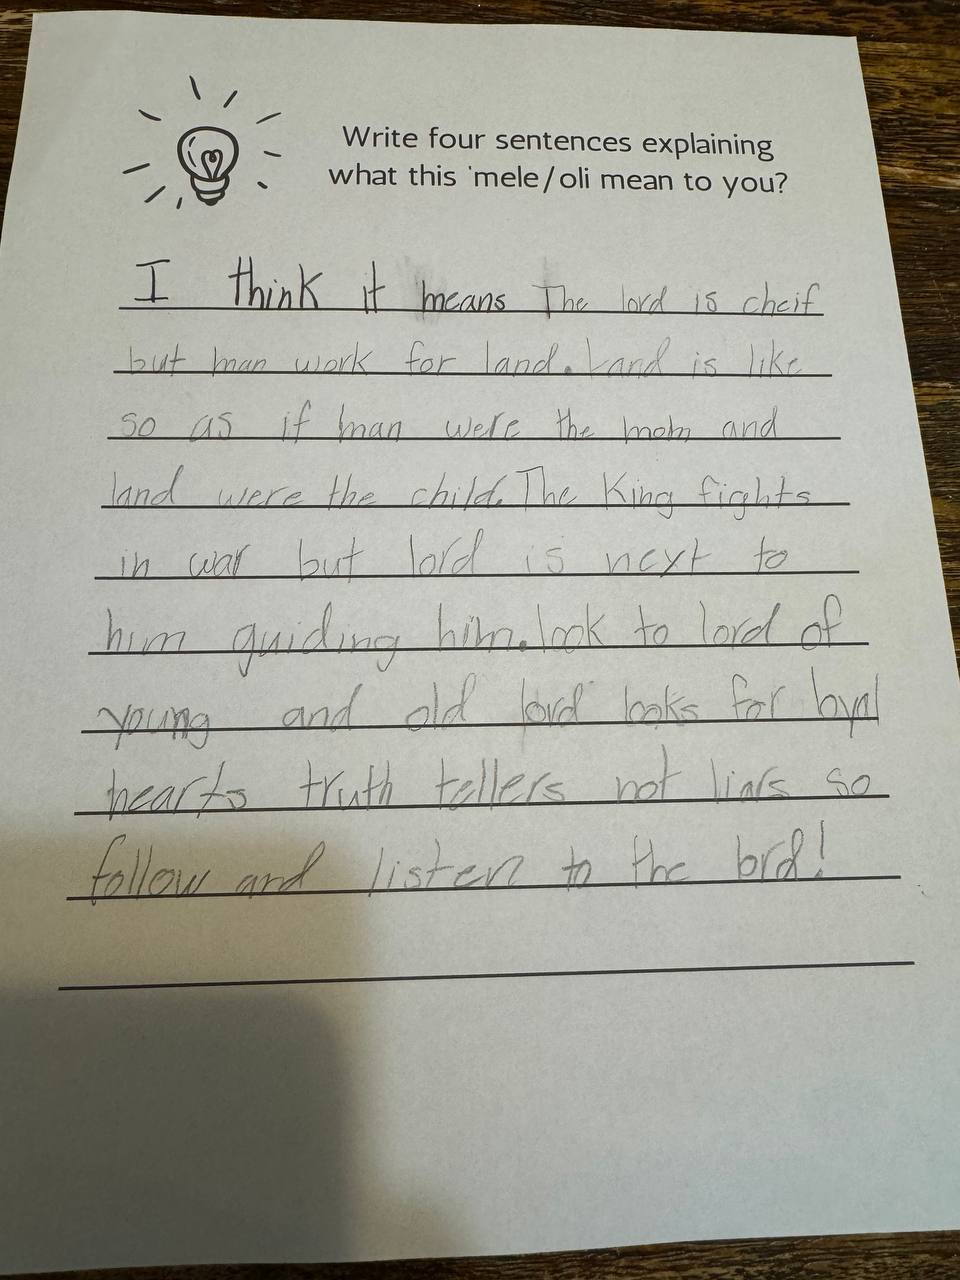 Write four sentences explaining
what this 'mele/oli mean to you?
I think it means The lord is cheif
but man work for land. Land is like
so as if man were the mom and
land were the child. The King fights
in war but lord is next to
him guiding him. look to lord of
young and old lord looks for loyal
hearts truth tellers not liars so
follow and listen to the lord!